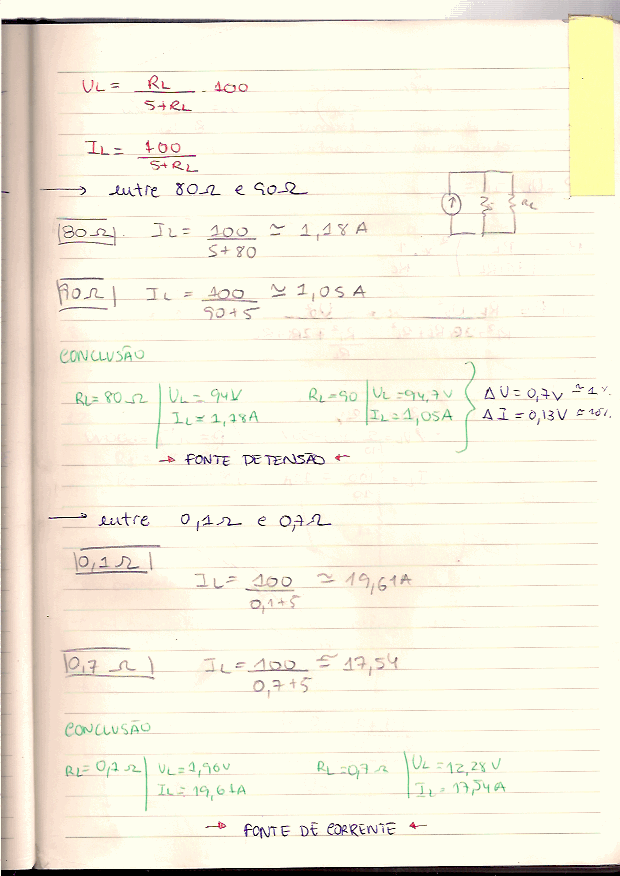 UL = RL / 5+RL . 100
IL = 100 / 5+RL
→ entre 80Ω e 90Ω
RL
80Ω. IL = 100 / 5+80 ≃ 1,18A
90Ω IL = 100 / 90+5 ≃ 1,05A
CONCLUSÃO
RL=80Ω | UL = 94V RL=90 | UL=94,7V } ΔU=0,7V ≃ 1%.
IL = 1,18A IL=1,05A ΔI=0,13V ≃ 10%.
→ FONTE DE TENSÃO ←
→ entre 0,1Ω e 0,7Ω
0,1Ω
IL = 100 / 0,1+5 ≃ 19,61A
0,7Ω IL = 100 / 0,7+5 ≃ 17,54
CONCLUSÃO
RL=0,1Ω | UL=1,96V RL=0,7Ω | UL=12,28V
IL=19,61A IL=17,54A
→ FONTE DE CORRENTE ←